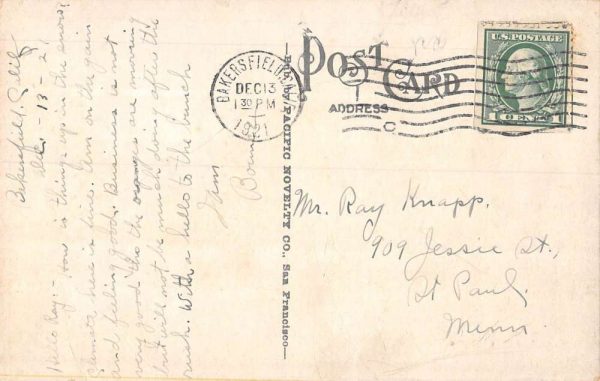 Bakersfield, Calif
Dec. - 13 - 21
Hello Ray: - How is things up in the snow?
Climate here is fine. Am
and feeling good. Business is not
very good tho the oranges are moving
but will not be much doing after the
rush. With a hello to the bunch
POST CARD
ADDRESS
BAKERSFIELD, CAL.
DEC 13
1 30 PM
1921
U.S. POSTAGE
1 CENT 1
PACIFIC NOVELTY CO., San Francisco
Mr. Ray Knapp.
909 Jessie St.,
St Paul,
Minn